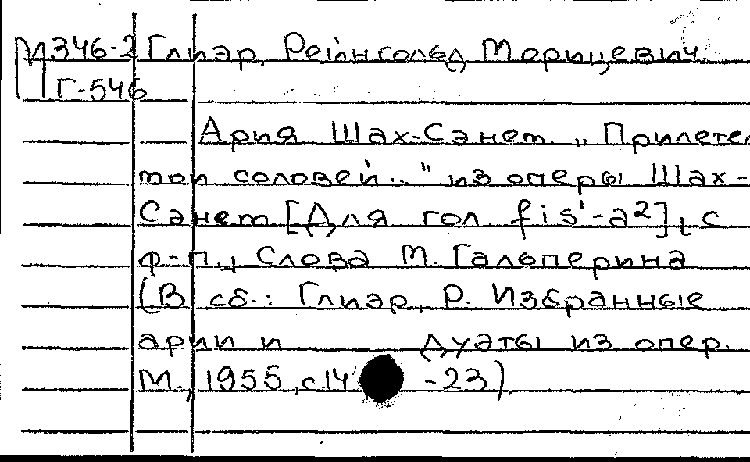 М346-2 Глиэр, Рейнгольд Морицевич.
Г-546
Ария Шах-Санем „Прилетел
мой соловей.." из оперы Шах-
Санем [Для гол. fis¹-a²], с
ф-п., Слова М. Гальперина
(В сб.: Глиэр, Р. Избранные
арии и дуэты из опер.
М., 1955, с.14 -23)